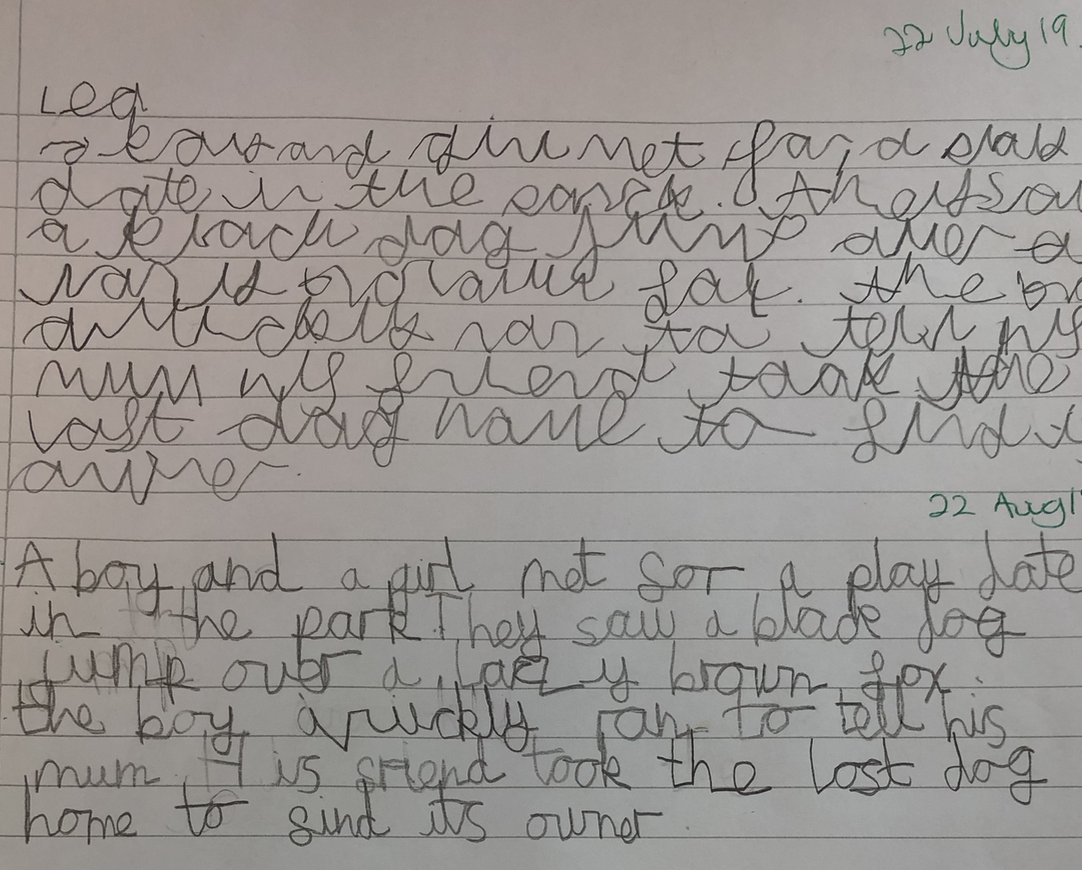 22 July 19
Leq
and girl met for a
date in the park. they saw
a black dog jump over a
fox. the
ran to tell his
mum his friend took the
lost dog home to find
owner.
22 Aug 1
A boy and a girl met for a play date
in the park. They saw a black dog
jump over a lazy brown fox.
the boy quickly ran to tell his
mum. His friend took the lost dog
home to find its owner.